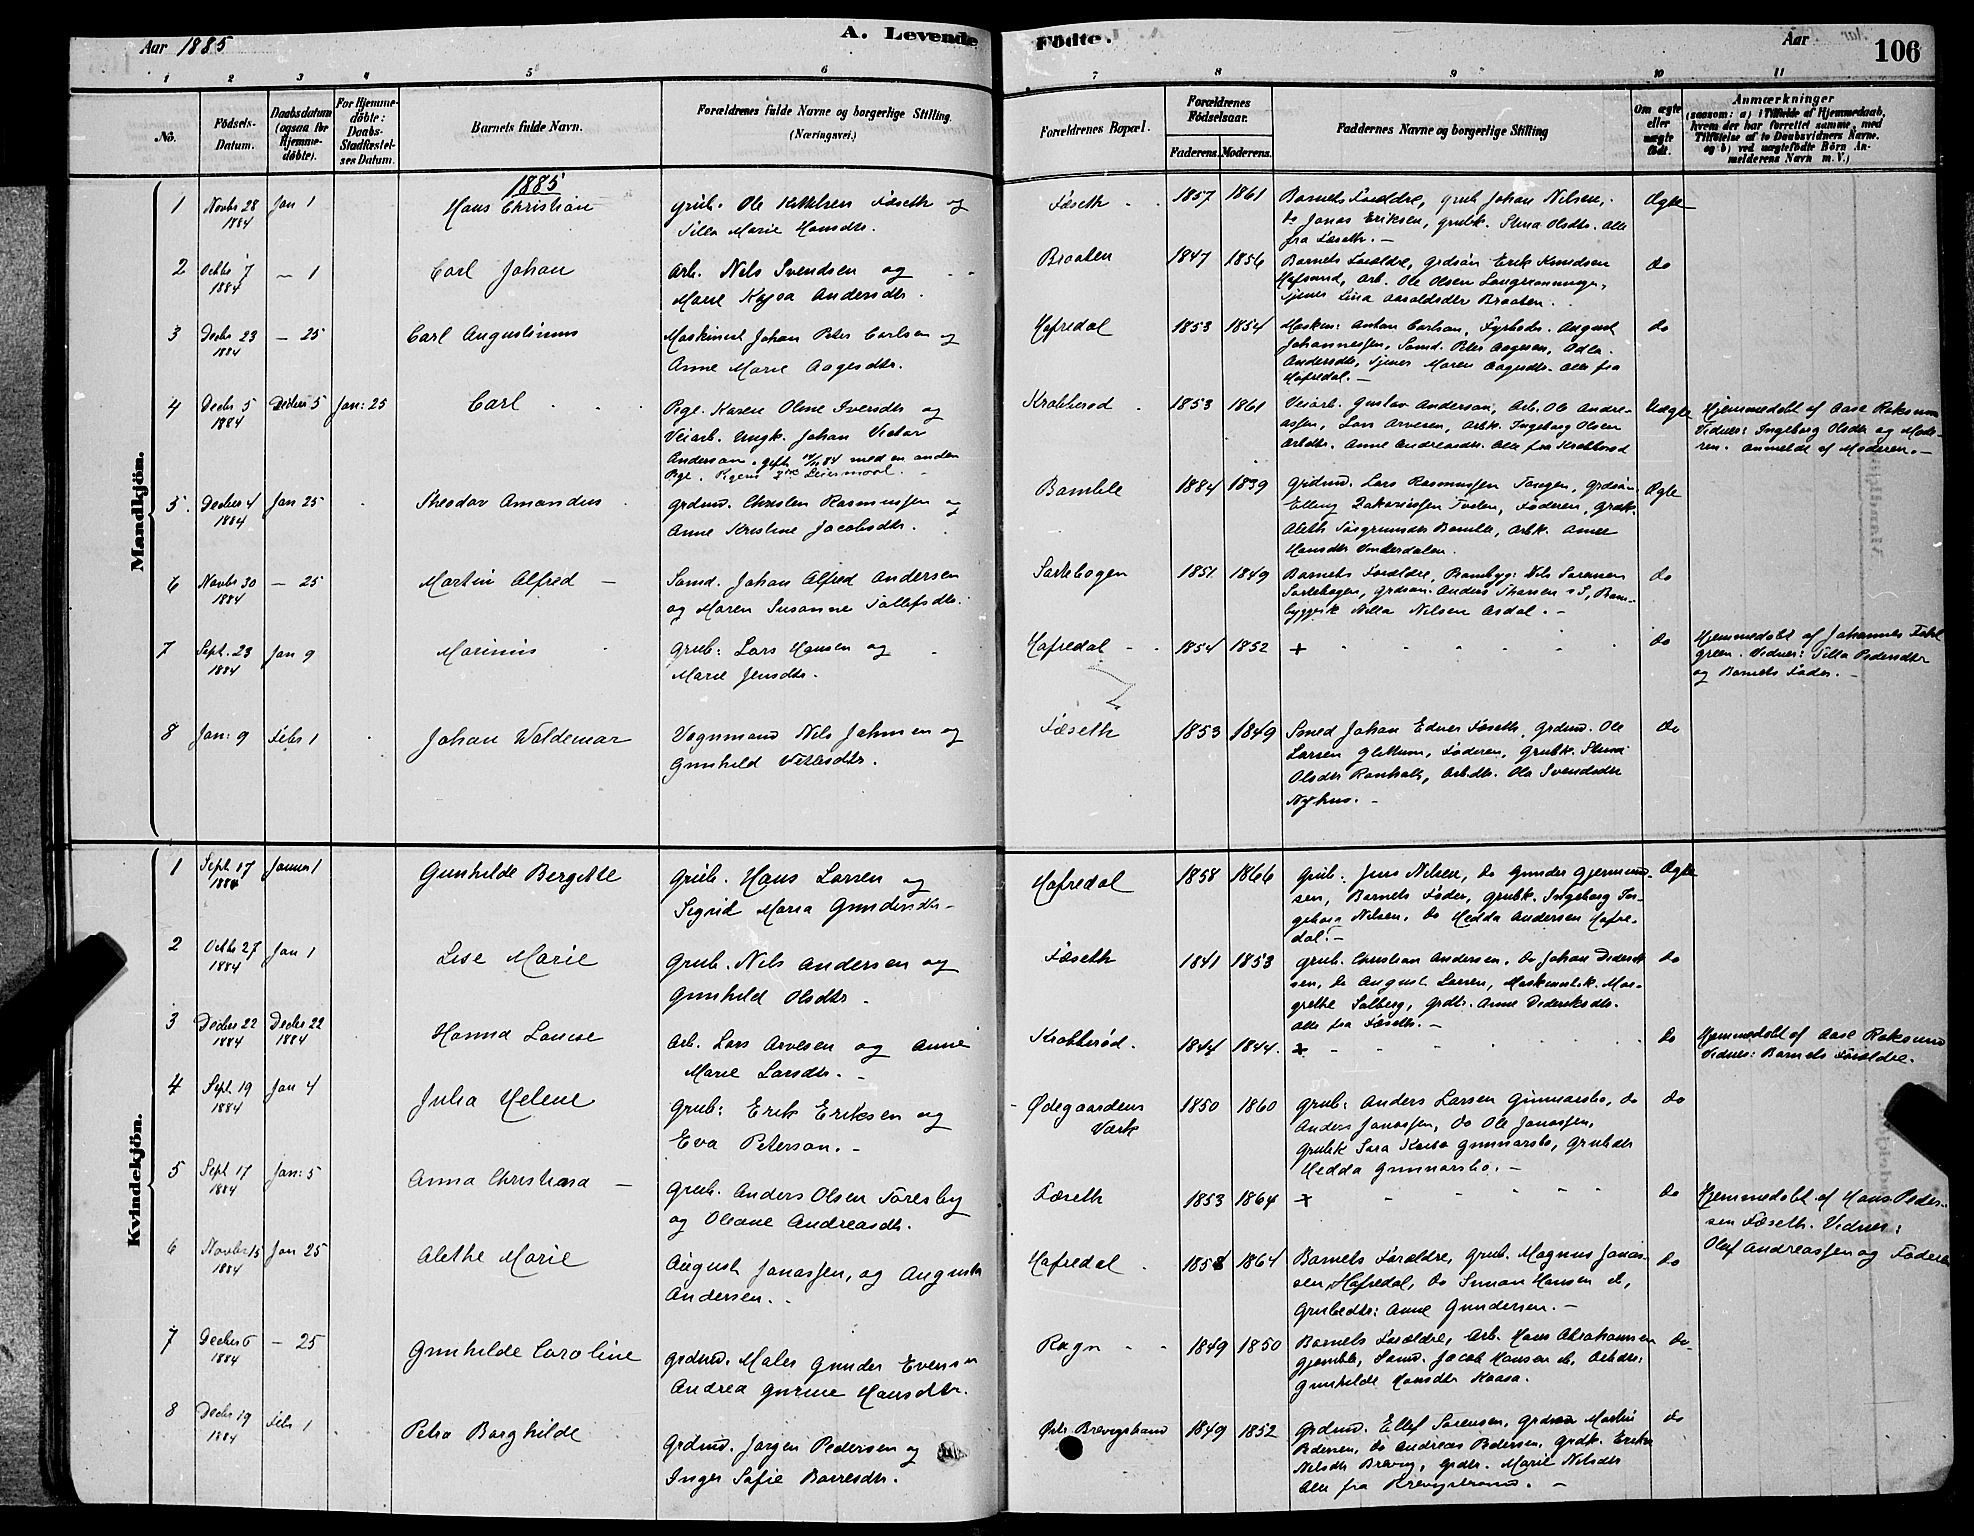 Aar 1885
A. Levende Födte.
Aar
106
1 2 3 4 5 6 7 8 9 10 11
No.
Födsels-Datum.
Daabsdatum (ogsaa for Hjemme-döbte).
For Hjemme-döbte: Daabs-Stadfæstel-ses Datum.
Barnets fulde Navn.
Forældrenes fulde Navne og borgerlige Stilling.
(Næringsvei.)
Forældrenes Bopæl.
Forældrenes Födselsaar.
Faderens. Moderens.
Faddernes Navne og borgerlige Stilling
Om ægte eller uægte födt.
Anmærkninger
(saasom: a) i Tilfælde af Hjemmedaab, hvem der har forrettet samme, med Tilföielse af to Daabsvidners Navne. og b) ved uægtefödte Börn Anmelderens Navn m. V.)
Mandkjön.
1885
1 Novbr 28 1884 Jan 1 Hans Christian
grub. Ole Kittilsen Fæseth og
Tilla Marie Hansdtr.
Fæseth 1857 1861
Barnets Forældre, grub Johan Nilsen,
do Jonas Eriksen, grubk. Stina Olsdtr. Alle
fra Fæseth. -
Ægte
2 Octbr 7 1884 - 1 Carl Johan
Arb. Nils Svendsen og
Marie Kajsa Andersdtr.
Braaten 1847 1856
Barnets Forældre, grdsön Erik Knudsen
Hafsund, Arb. Ole Olsen
Tjener Lina Braaten.
do
3 Decbr 23 1884 - 25 Carl Augustinus
Maskinist Johan Peter Carlsen og
Anne Marie Aagesdtr.
Hafredal 1853 1854
Maskin: Anton Carlson, Fyrböder. August
Johannessen, Sömd. Peter Aagesen, Adla
Andersdtr, Tjener Maren Aagesdtr. Alle fra
Hafredal. -
do
4 Decbr 5 1884 Decbr 5 Jan: 25 Carl
Pige. Karen Oline Iversdtr og
Veiarb. Ungk. Johan Victor
Anderson. gift 84 med en anden
Pige. 2det Leiermaal.
Krabberød 1853 1861
Veiarb. Gustav Anderson, Arb. Ole Andre-
assen, Lars Arvesen, Arbk. Ingeborg Olsen
Arbdtr. Anne Andreasdtr. Alle fra Krabberød
Uægte
Hjemmedøbt af Aase Roksund
Vidner: Ingeborg Olsdtr og Mode-
ren. Anmeldt af Moderen. -
5 Decbr 4 1884 Jan 25 Theodor Amandus
grdmd. Christen Rasmussen og
Anne Kristine Jacobsdtr.
Bamble 1884 1839
Grdmd. Lars Rasmussen Tangen, Grdsön
Elling Zakariassen Tveten, Faderen, Grdk.
Aleth Bamble, Arbk. Anne
Hansdtr Vinderdalen.
Ægte
6 Novbr 30 1884 - 25 Martin Alfred
Sömd. Johan Alfred Andersen
og Maren Susanne Tollefsdtr.
Sartebogen 1851 1849
Barnets Forældre, Nils Sørensen
Sartebogen, Grdsön. Anders
Nilla Nilsen Asdal. -
do
7 Sept. 23 1884 Jan 9 Marinius
Grub: Lars Hansen og
Marie Jensdtr.
Hafredal 1854 1852
+
do
Hjemmedøbt af Johannes
green. Vidner: Tilla Pedersdtr
og Barnets Fader. -
8 Jan: 9 Febr 1 Johan Waldemar
Vognmand Nils Johnsen og
Gunhild
Fæseth 1853 1849
Smed Johan Fæseth, Grdmd. Ole
Larsen Glittum, Faderen, Grubk. Stina
Olsdtr Ronholt, Arbdtr. Ola Svendsdtr
Nyhus. -
do
Kvindekjön.
1 Sept. 17 1884 Januar 1 Gunhilde Bergitte
Grub. Hans Larsen og
Sigrid Maria Gundersdtr -
Hafredal 1858 1866
Grub: Jens Nilsen, do Gunder Gjermund-
sen, Barnets Fader, Grubk. Ingeborg
Nilsen, do Hedda Andersen Hafre-
dal. -
Ægte
2 Octbr 27 1884 Jan 1 Lise Marie
Grub. Nils Andersen og
Gunhild Olsdtr -
Fæseth 1841 1853
grub. Christian Andersen, do Johan Diderik-
sen, do August Larsen, Maskinistk. Mar-
grethe Solberg, grdtr. Anne Dideriksdtr.
Alle fra Fæseth. -
do
3 Decbr 22 1884 Decbr 22 1884 Hanna Louise
Arb. Lars Arvesen og Anne
Marie Larsdtr. -
Krabberød. 1844 1844.
+
do
Hjemmedøbt af Aase Roksund
Vidner: Barnets Forældre.
4 Sept. 19 1884 Jan 4 Julia Helene
Grub: Erik Eriksen og
Eva Peterson. -
Ødegaardens
Værk 1850 1860
Grub: Anders Larsen Gunnarsbo, do
Anders Jonassen, do Ole Jonassen,
Grubk Sara Kaisa Gunnarsbo, Grubdtr
Hedda Gunnarsbo. -
do
5 Sept 17 1884 Jan: 5 Anna Christiana -
Grub. Anders Olsen Foresby
og Oleane Andreasdtr.
Fæseth 1853 1864
+
do
Hjemmedøbt af Hans Peder-
sen Fæseth. Vidner:
Oluf Andreassen og Faderen
6 Novbr 15 1884 Jan 25 Alethe Marie
August Jonassen, og Augusta
Andersen.
Hafredal 1858 1864
Barnets Forældre, Grub. Magnus Jonas-
sen, Hafredal, do Simon Hansen
Grubedtr: Anne Gundersen. -
do
7 Decbr 6 1884 - 25 Gunhilde Caroline
Grdmd. Maler Gunder Evensen
Andrea Gurine Hansdtr.
Rogn 1849 1850
Barnets Forældre, Arb. Hans Abrahamsen
Sömd. Jacob Hansen Arbdtr:
Gunhilde Hansdtr Kaasa.
do
8 Decbr 19 1884 Febr 1 Petra Borghilde
Grdmd. Jørgen Pedersen og
Inger Sofie
Brevigstrand 1849 1852
Grdmd. Ellef Sørensen, grdsøn Martin
Pedersen, do Andreas Pedersen, Grdk.
Nilsdtr Brevig, grdtr. Marie Nilsdtr
Alle fra Brevigstrand. -
do